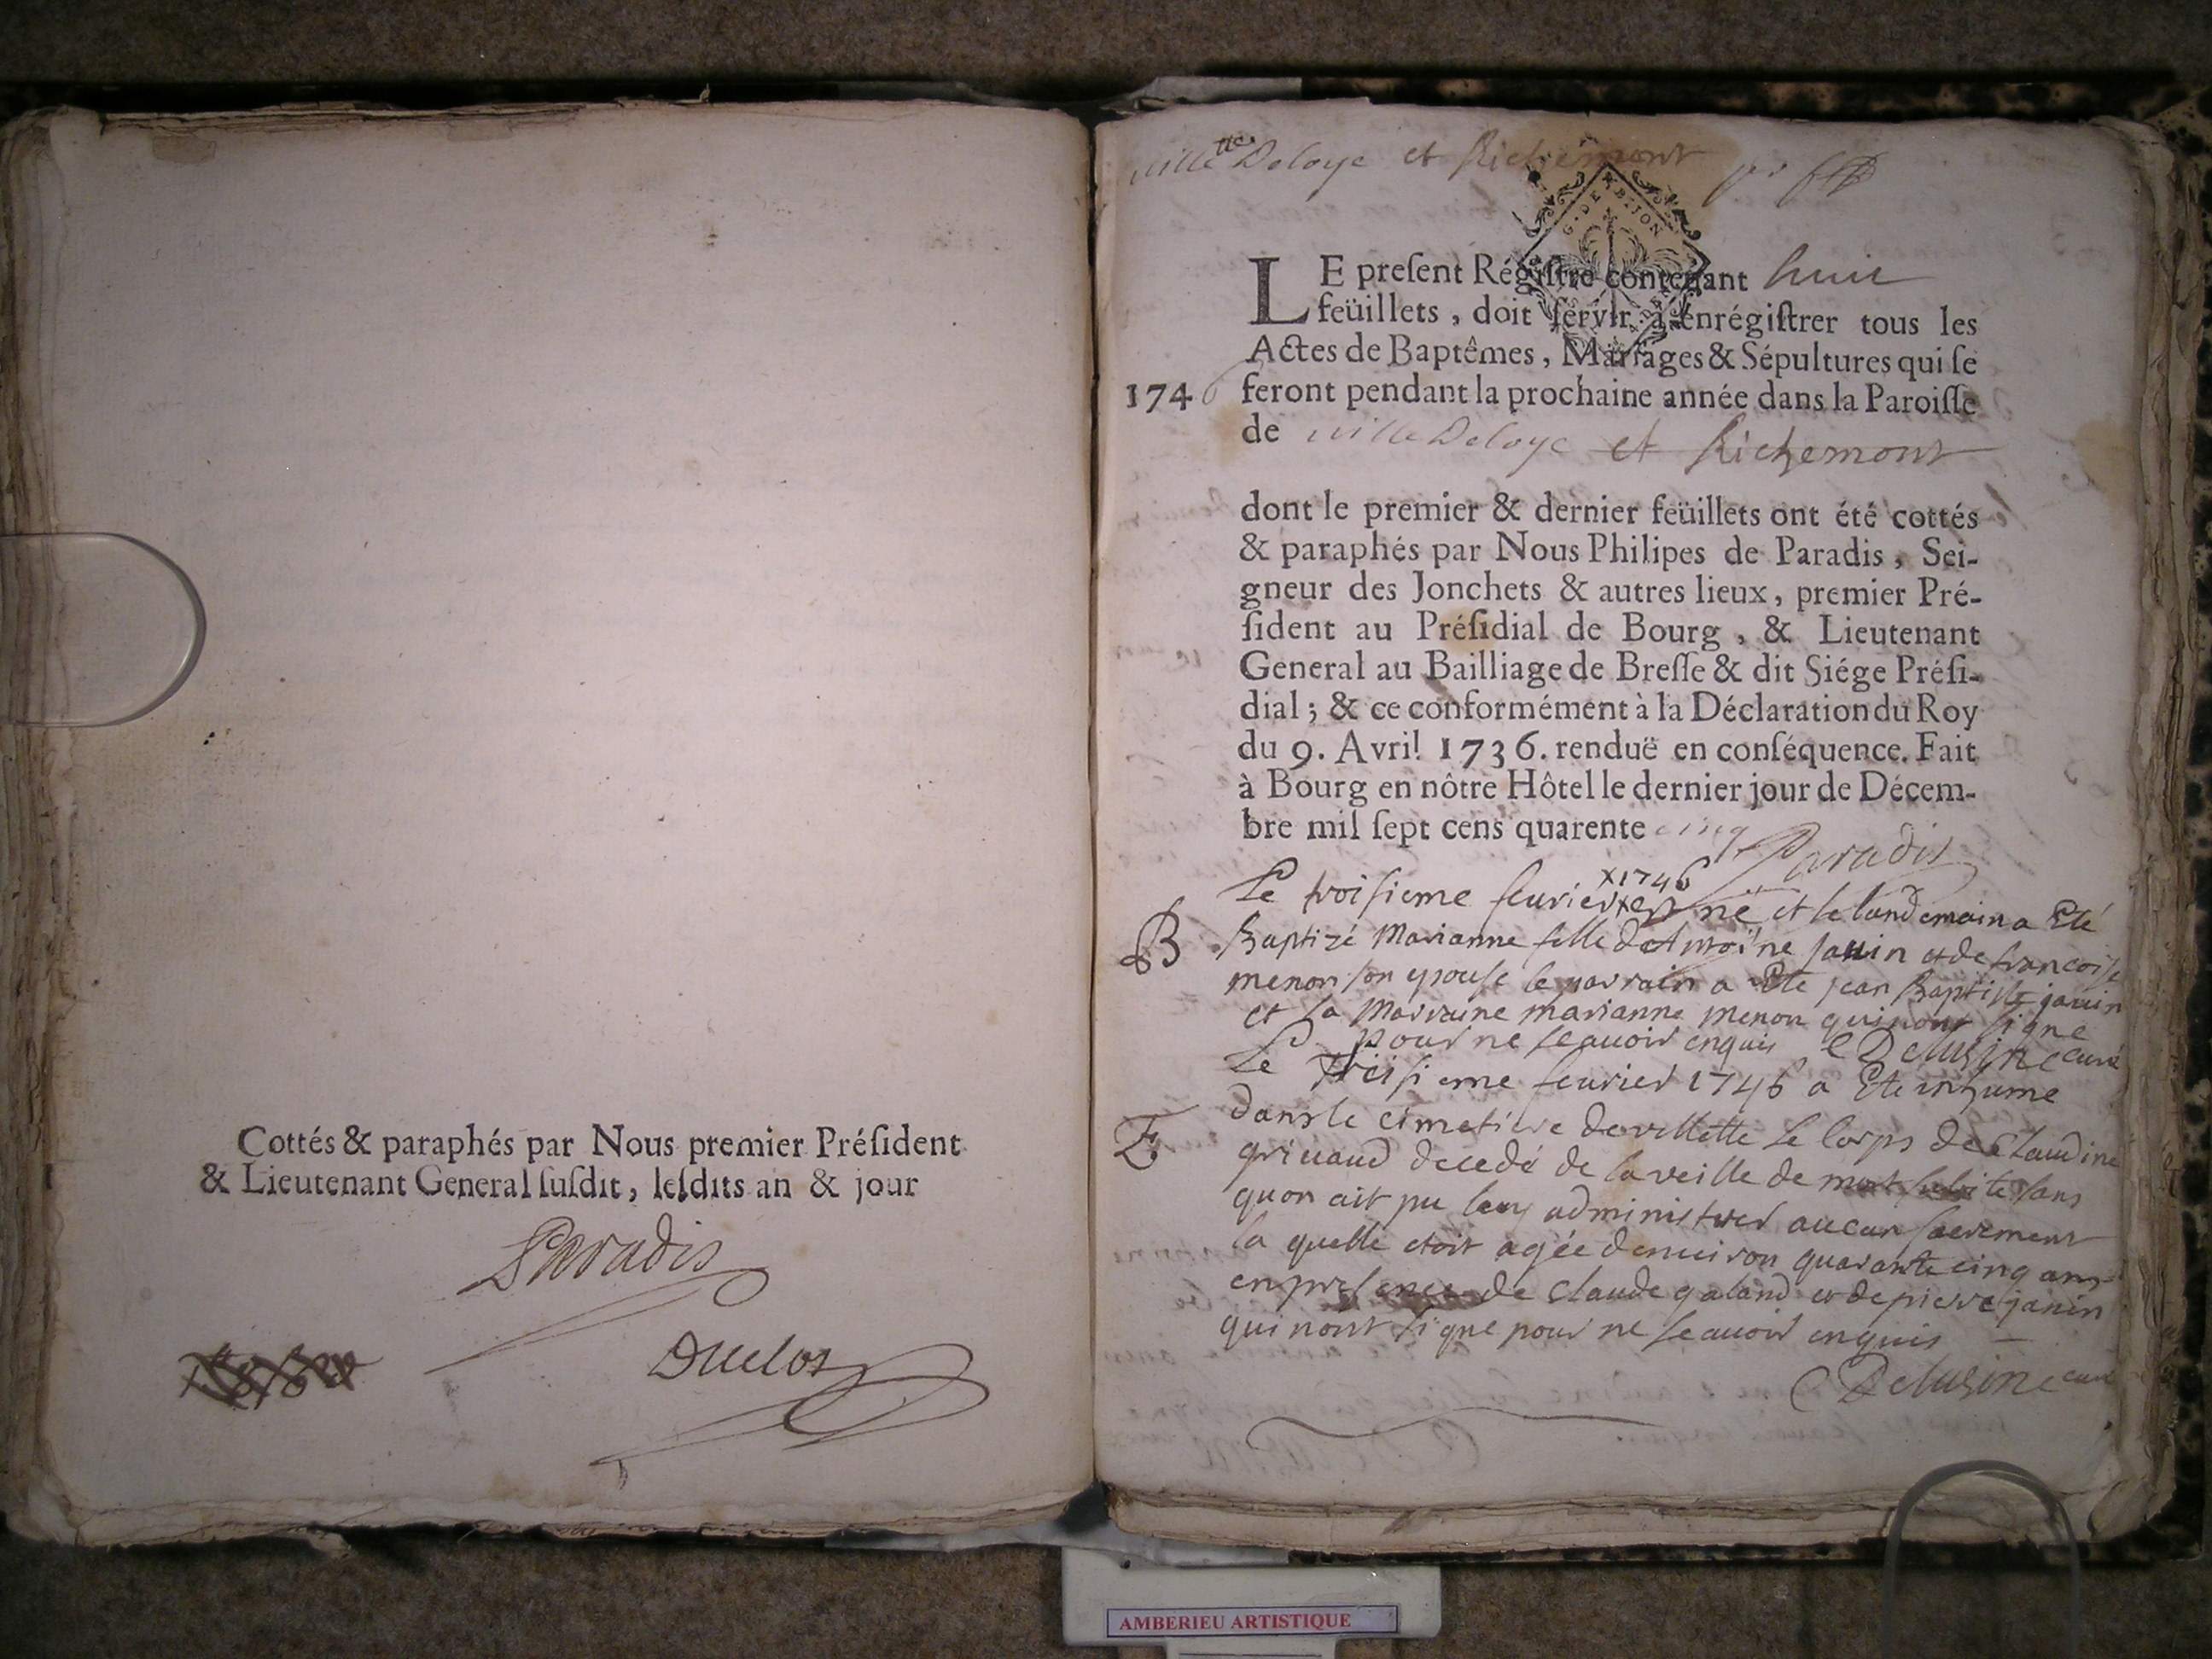 Cottés & paraphés par Nous premier Préſident
& Lieutenant General ſuſdit, leſdits an & jour
Paradis
Duclos
villette Deloye et Richemont
G. DE DIJON
LE preſent Régiſtre contenant huit
feüillets, doit ſervir à enrégiſtrer tous les
Actes de Baptêmes, Mariages & Sépultures qui ſe
1746 feront pendant la prochaine année dans la Paroiſſe
de ville Deloye et Richemont
dont le premier & dernier feüillets ont été cottés
& paraphés par Nous Philipes de Paradis, Sei-
gneur des Jonchets & autres lieux, premier Pré-
ſident au Préſidial de Bourg, & Lieutenant
General au Bailliage de Breſſe & dit Siége Préſi-
dial; & ce conformément à la Déclaration du Roy
du 9. Avril 1736. renduë en conſéquence. Fait
à Bourg en nôtre Hôtel le dernier jour de Décem-
bre mil ſept cens quarente cinq Paradis
x1746
Le troisieme feurier x est né et le landemain a Eté
B Baptizé Marianne fille dAntoine janin et de francoise
menon son epouse le parrain a Ete jean Baptiste janin
et la Marraine marianne menon qui nont signe
pour ne scauoir enquis C Delusine curé
Le Troisieme feurier 1746 a Ete inhume
dans le cimetiere de villette Le Corps de Claudine
E griuaud decedé de la veille de mort subite sans
quon ait pu luy administrer aucun sacrement
la quelle etoit agée denuiron quarante cinq ans
en presence de Claude galand et de pierre janin
qui nont signe pour ne scauoir enquis
C Delusine curé
AMBERIEU ARTISTIQUE